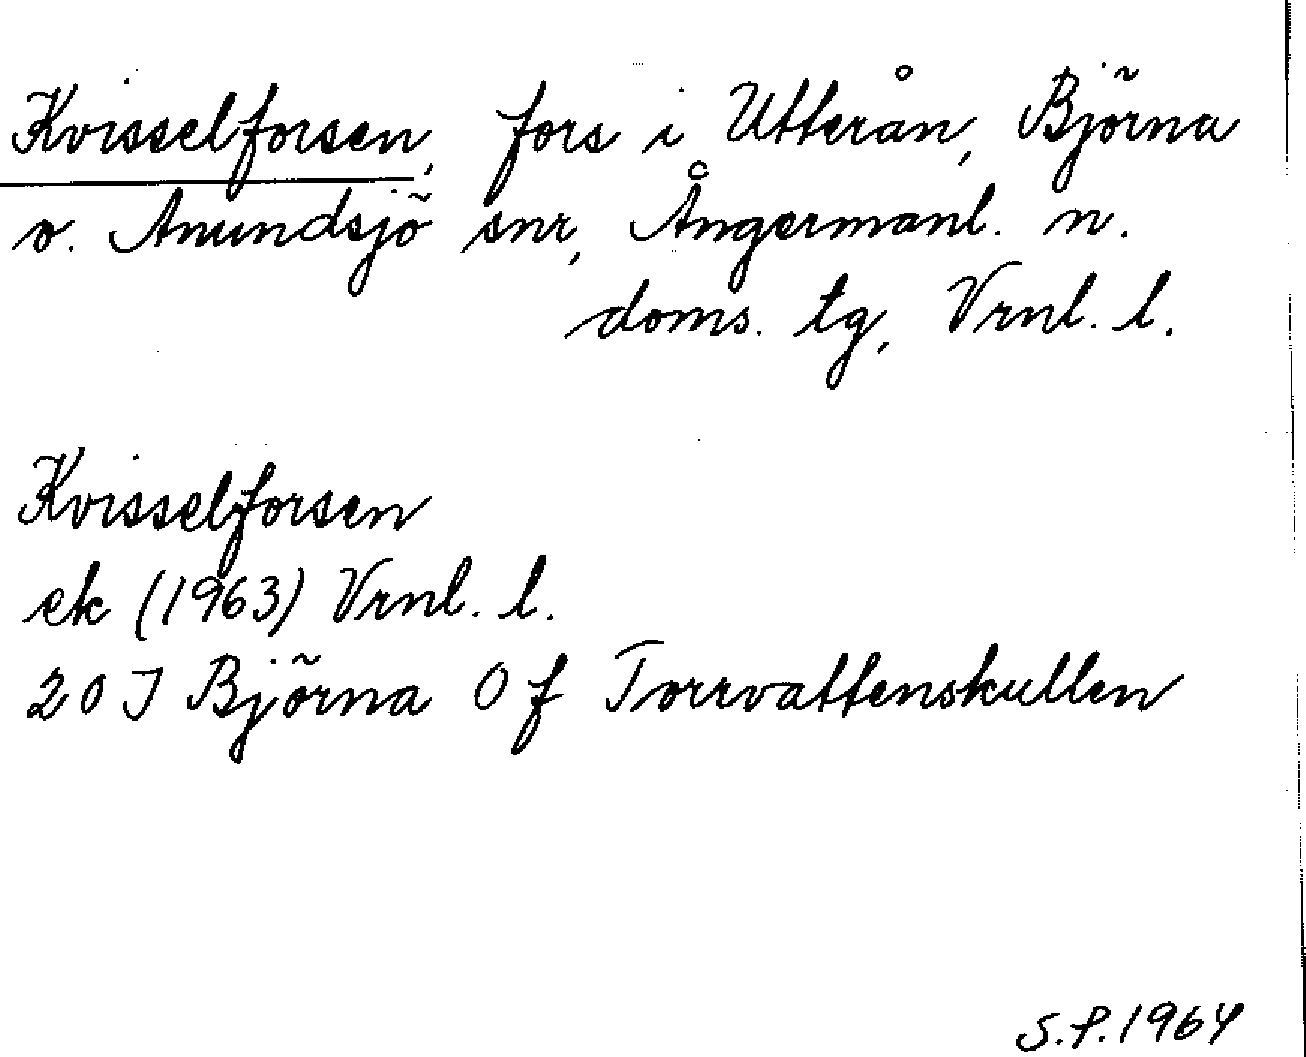 Kvisselforsen, fors i Utterån, Björna
o. Anundsjö snr, Ångermanl. n.
doms. tg, Vrnl. l.
Kvisselforsen
ek (1963) Vrnl. l.
20 J Björna 0 f Torrvattenskullen
S.P. 1964